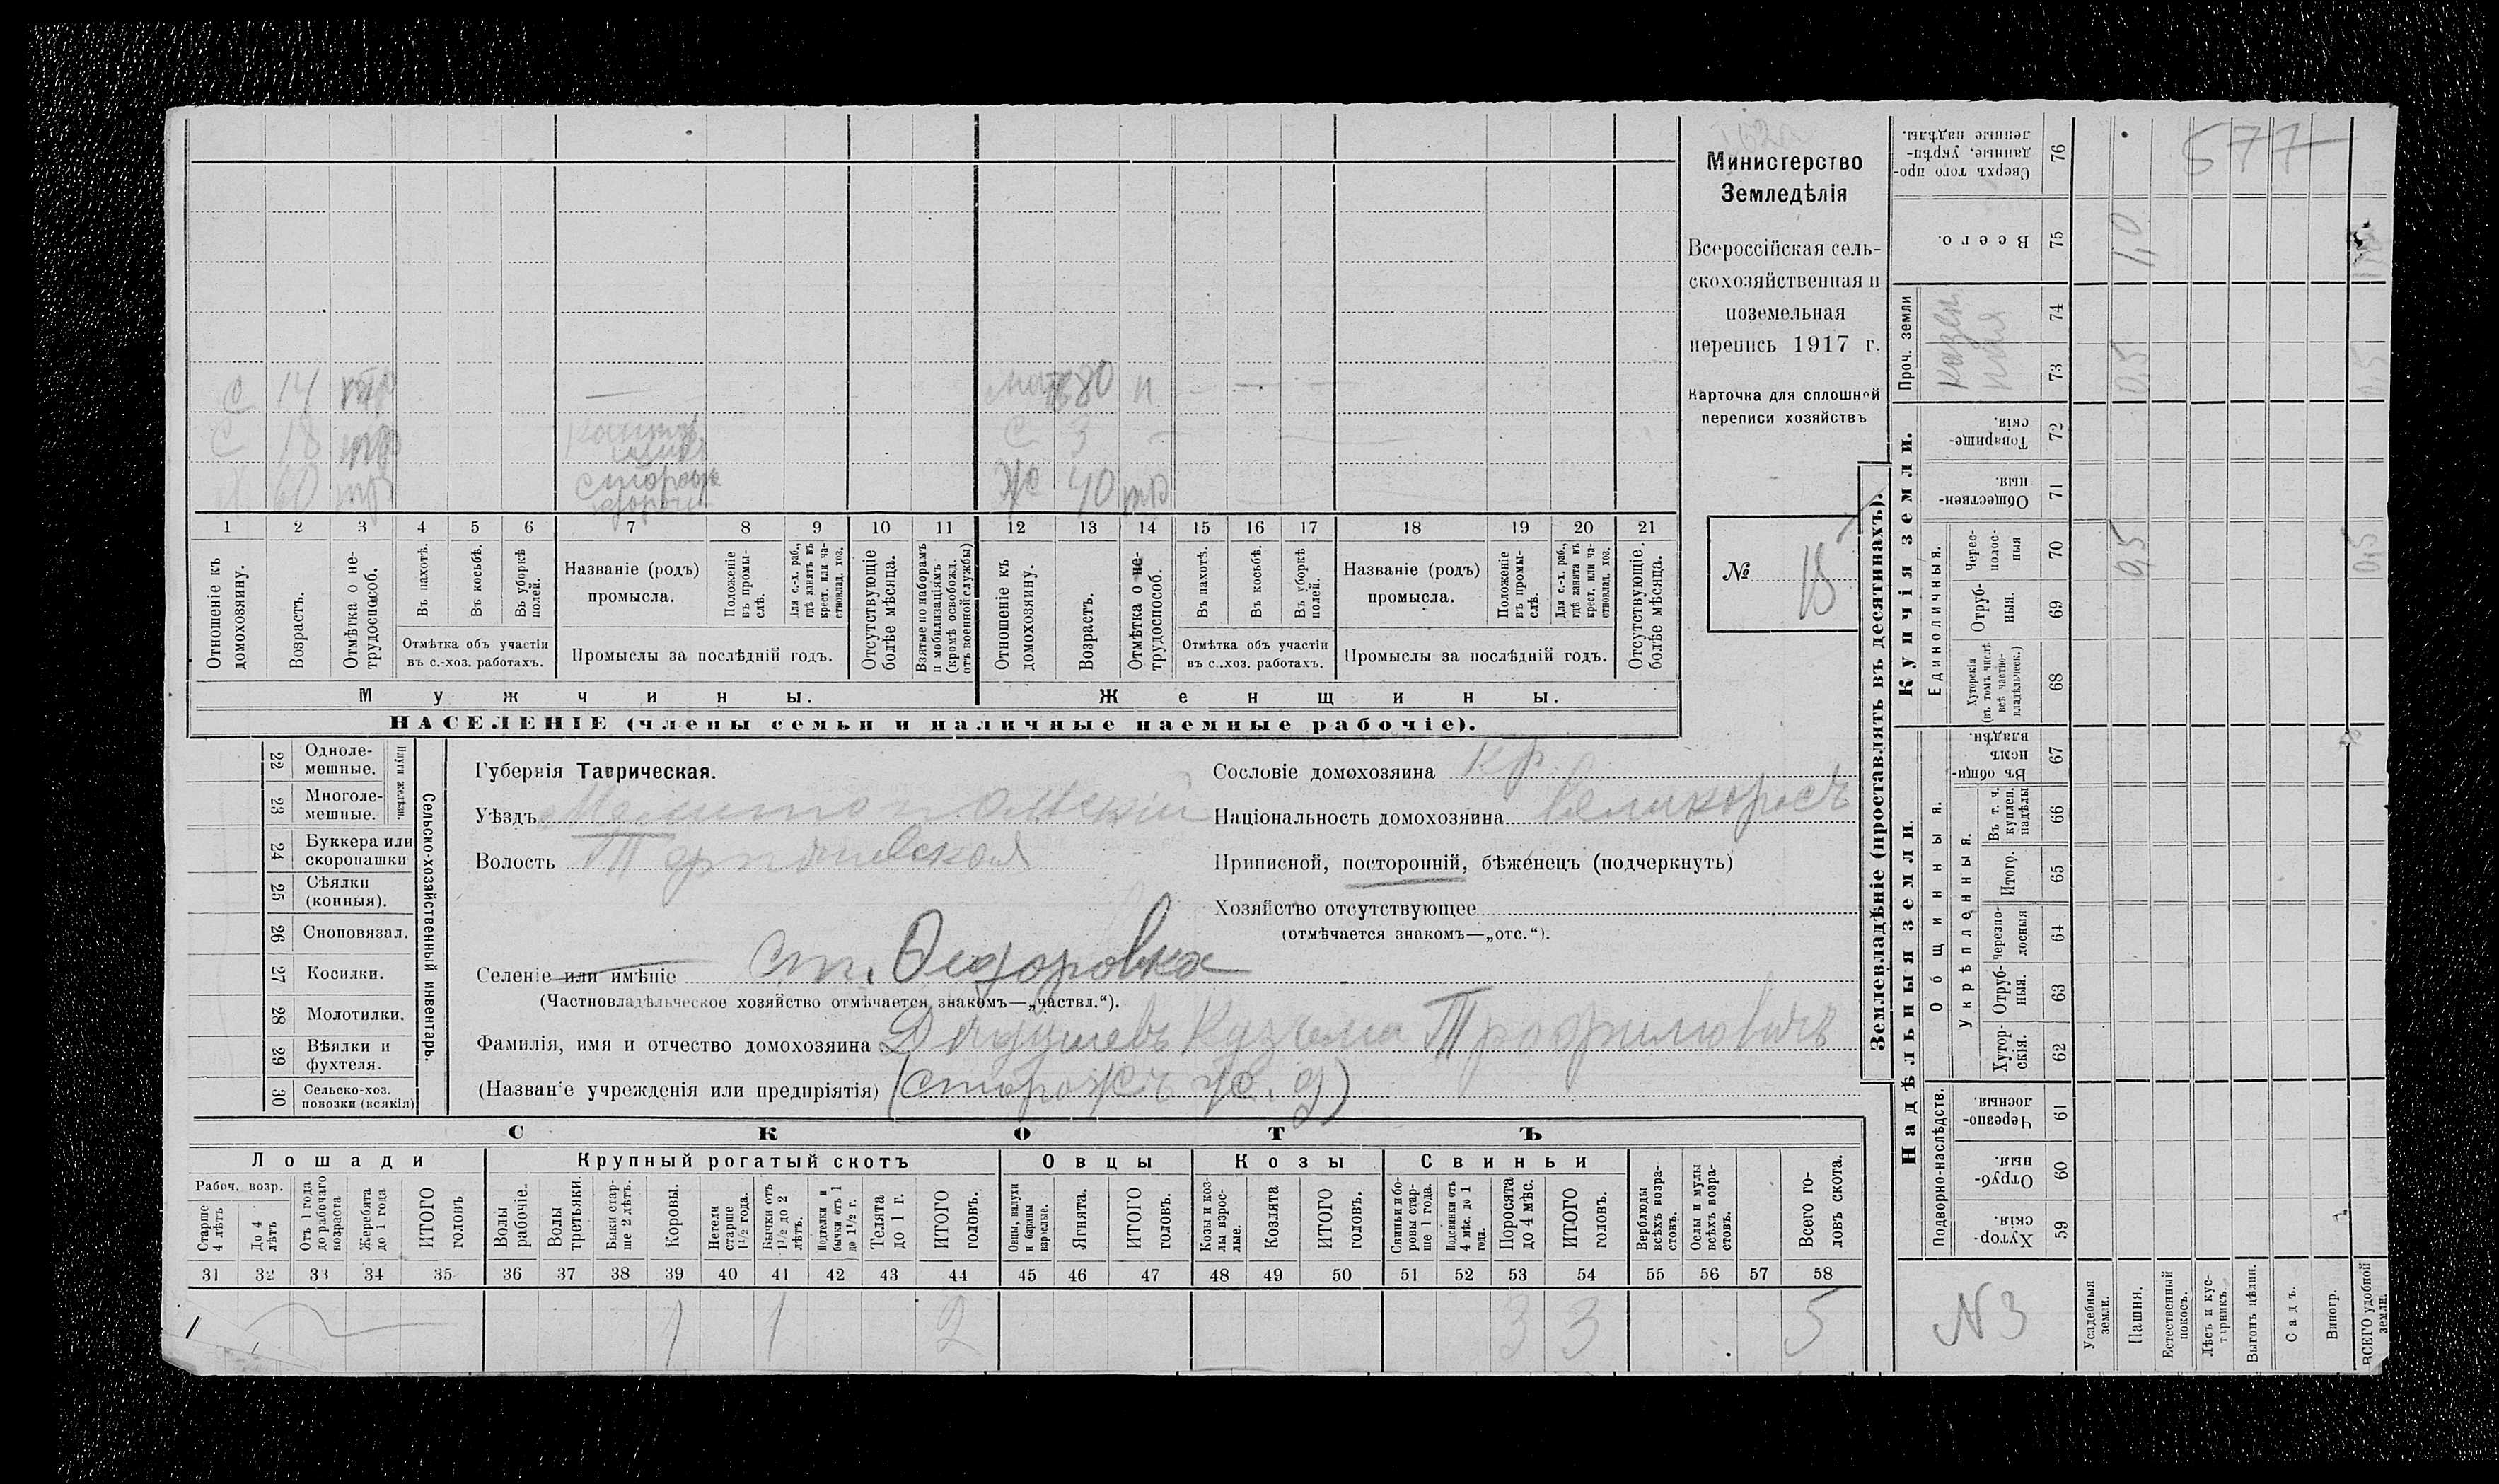 Министерство
Земледѣлія
Всероссійская сель-
скохозяйственная и
поземельная
перепись 1917 г.
Карточка для сплошной
переписи хозяйствъ
№ 15
С 14 мать 80 н
С 18 С 3
60 Сторожъ Ж 40
1 2 3 4 5 6 7 8 9 10 11 12 13 14 15 16 17 18 19 20 21
Отношеніе къ домохозяину.
Возрастъ.
Отмѣтка о не-трудоспособ.
Въ пахотѣ.
Въ косьбѣ.
Въ уборкѣ полей.
Отмѣтка объ участіи въ с.-хоз. работахъ.
Названіе (родъ) промысла.
Положеніе въ промы-слѣ.
Для с.-х. раб., гдѣ занятъ въ крест. или ча-стновлад. хоз.
Промыслы за послѣдній годъ.
Отсутствующіе болѣе мѣсяца.
Взятые по наборамъ и мобилизаціямъ (кромѣ освобожд. отъ военной службы)
Отношеніе къ домохозяину.
Возрастъ.
Отмѣтка о не-трудоспособ.
Въ пахотѣ.
Въ косьбѣ.
Въ уборкѣ полей.
Отмѣтка объ участіи въ с..хоз. работахъ.
Названіе (родъ) промысла.
Положеніе въ промы-слѣ.
Для с.-х. раб., гдѣ занята въ крест. или ча-стновлад. хоз.
Промыслы за послѣдній годъ.
Отсутствующіе болѣе мѣсяца.
Мужчины. Женщины.
НАСЕЛЕНІЕ (члены семьи и наличные наемные рабочіе).
Сельско-хозяйственный инвентарь.
Плуги желѣзн.
22 Одноле-мешные.
23 Многоле-мешные.
24 Буккера или скоропашки
25 Сѣялки (конныя).
26 Сноповязал.
27 Косилки.
28 Молотилки.
29 Вѣялки и фухтеля.
30 Сельско-хоз. повозки (всякія)
Губернія Таврическая.
Уѣздъ Мелитопольскій
Волость
Сословіе домохозяина кр.
Національность домохозяина великороссъ
Приписной, посторонній, бѣженецъ (подчеркнуть)
Хозяйство отсутствующее
(отмѣчается знакомъ—„отс.“).
Селеніе или имѣніе ст. Ѳедоровка
(Частновладѣльческое хозяйство отмѣчается знакомъ—„частвл.“).
Фамилія, имя и отчество домохозяина Кузьма Трофимовичъ
(Названіе учрежденія или предпріятія) (сторожъ ж. д)
СКОТЪ
Лошади Крупный рогатый скотъ Овцы Козы Свиньи
Рабоч. возр.
Старше 4 лѣтъ
До 4 лѣтъ
Отъ 1 года до рабочаго возраста
Жеребята до 1 года
ИТОГО головъ
Волы рабочіе.
Волы третьяки.
Быки стар-ше 2 лѣтъ.
Коровы.
Нетели старше 1½ года.
Бычки отъ 1½ до 2 лѣтъ.
Подтелки и бычки отъ 1 до 1½ г.
Телята до 1 г.
ИТОГО головъ.
Овцы, валухи и бараны взрослые.
Ягнята.
ИТОГО головъ.
Козы и коз-лы взрос-лые.
Козлята
ИТОГО головъ.
Свиньи и бо-ровы стар-ше 1 года.
Подсвинки отъ 4 мѣс. до 1 года.
Поросята до 4 мѣс.
ИТОГО головъ.
Верблюды всѣхъ возра-стовъ.
Ослы и мулы всѣхъ возра-стовъ.
Всего го-ловъ скота.
31 32 33 34 35 36 37 38 39 40 41 42 43 44 45 46 47 48 49 50 51 52 53 54 55 56 57 58
1 1 2 3 3 5
Землевладѣніе (проставлять въ десятинахъ).
Купчія земли.
Надѣльныя земли
Сверхъ того про-данные, укрѣп-ленные надѣлы. 76 577
Всего. 75 1,0
Проч. земли казенная 74
73 0,5 0,5
Товарище-скія. 72
Обществен-ныя. 71
Единоличныя.
Черес-полос-ныя 70 0,5 0,5
Отруб-ныя. 69
Хуторскія (въ томъ числѣ всѣ частно-владѣльческ.) 68
Общинныя.
Въ общи-номъ владѣн. 67
Укрѣпленныя.
Въ т. ч. куплен. надѣлы 66
Итого. 65
Черезпо-лосныя 64
Отруб-ныя. 63
Хутор-скія. 62
Подворно-наслѣдств.
Черезпо-лосныя. 61
Отруб-ныя. 60
Хутор-скія. 59
N 3
Усадебныя земли.
Пашня.
Естественный покосъ.
Лѣсъ и кус-тарникъ.
Выгонъ цѣлин.
Садъ.
Виногр.
ВСЕГО удобной земли.